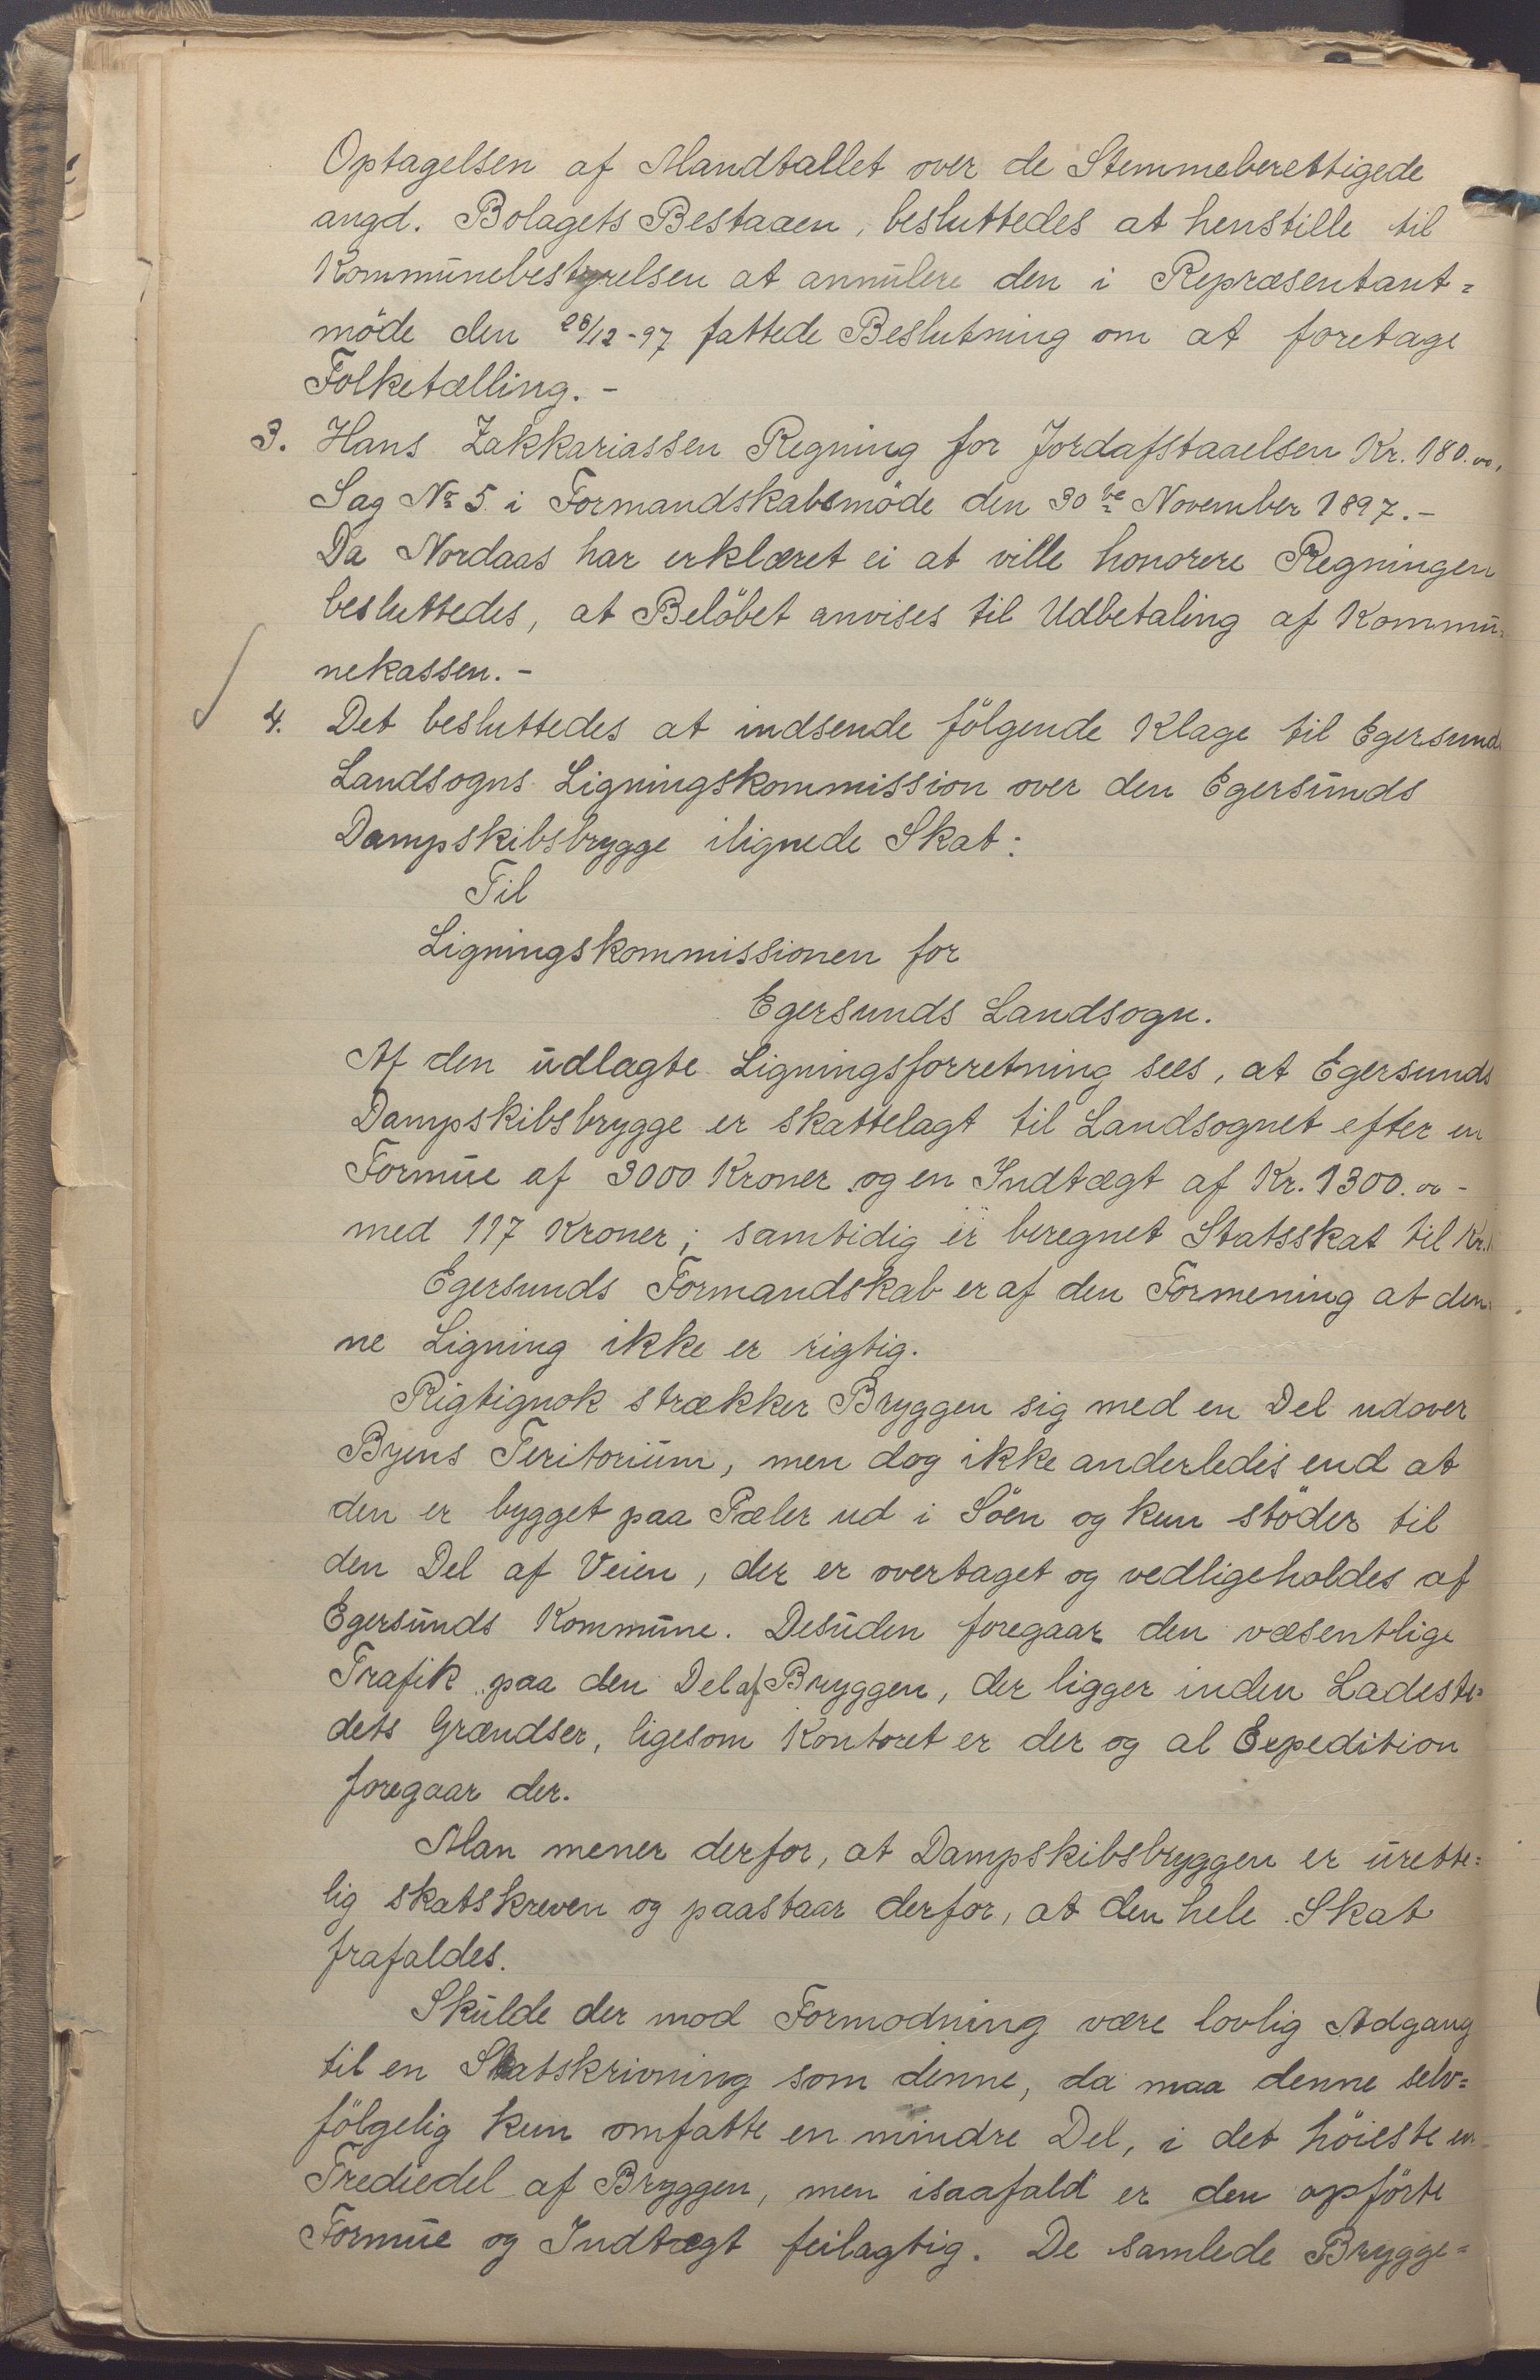 Optagelsen af Mandtallet over de Stemmeberettigede
angd. Bolagets Bestaaen, besluttedes at henstille til
Kommunebestyrelsen at annulere den i Repræsentant=
möde den 28/12-97 fattede Beslutning om at foretage
Folketælling. -
3. Hans Zakkariassen Regning for Jordafstaaelsen Kr. 180.00,
Sag No 5 i Formandskabsmöde den 30te November 1897.-
Da Nordaas har erklæret ei at ville honorere Regningen
besluttedes, at Belöbet anvises til Udbetaling af Kommu=
nekassen. -
4. Det besluttedes at indsende fölgende Klage til Egersunds
Landsogns Ligningskommission over den Egersunds
Dampskibsbrygge ilignede Skat:
Til
Ligningskommissionen for
Egersunds Landsogn.
Af den udlagte Ligningsforretning sees, at Egersunds
Dampskibsbrygge er skattelagt til Landsognet efter en
Formue af 3000 Kroner og en Indtægt af Kr. 1300.00 -
med 117 Kroner; samtidig er beregnet Statsskat til Kr.
Egersunds Formandskab er af den Formening at den=
ne Ligning ikke er rigtig.
Rigtignok strækker Bryggen sig med en Del udover
Byens Teritorium, men dog ikke anderledes end at
den er bygget paa Pæler ud i Söen og kun stöder til
den Del af Veien, der er overtaget og vedligeholdes af
Egersunds Kommune. Desuden foregaar den væsentlige
Trafik paa den Del af Bryggen, der ligger inden Ladeste=
dets Grændser, ligesom Kontoret er der og al Expedition
foregaar der.
Man mener derfor, at Dampskibsbryggen er urette=
lig skatskreven og paastaar derfor, at den hele Skat
frafaldes.
Skulde der mod Formodning være lovlig Adgang
til en Skatskrivning som denne, da maa denne selv=
fölgelig kun omfatte en mindre Del, i det höieste en
Trediedel af Bryggen, men isaafald er den opförte
Formue og Indtægt feilagtig. De samlede Brygge=